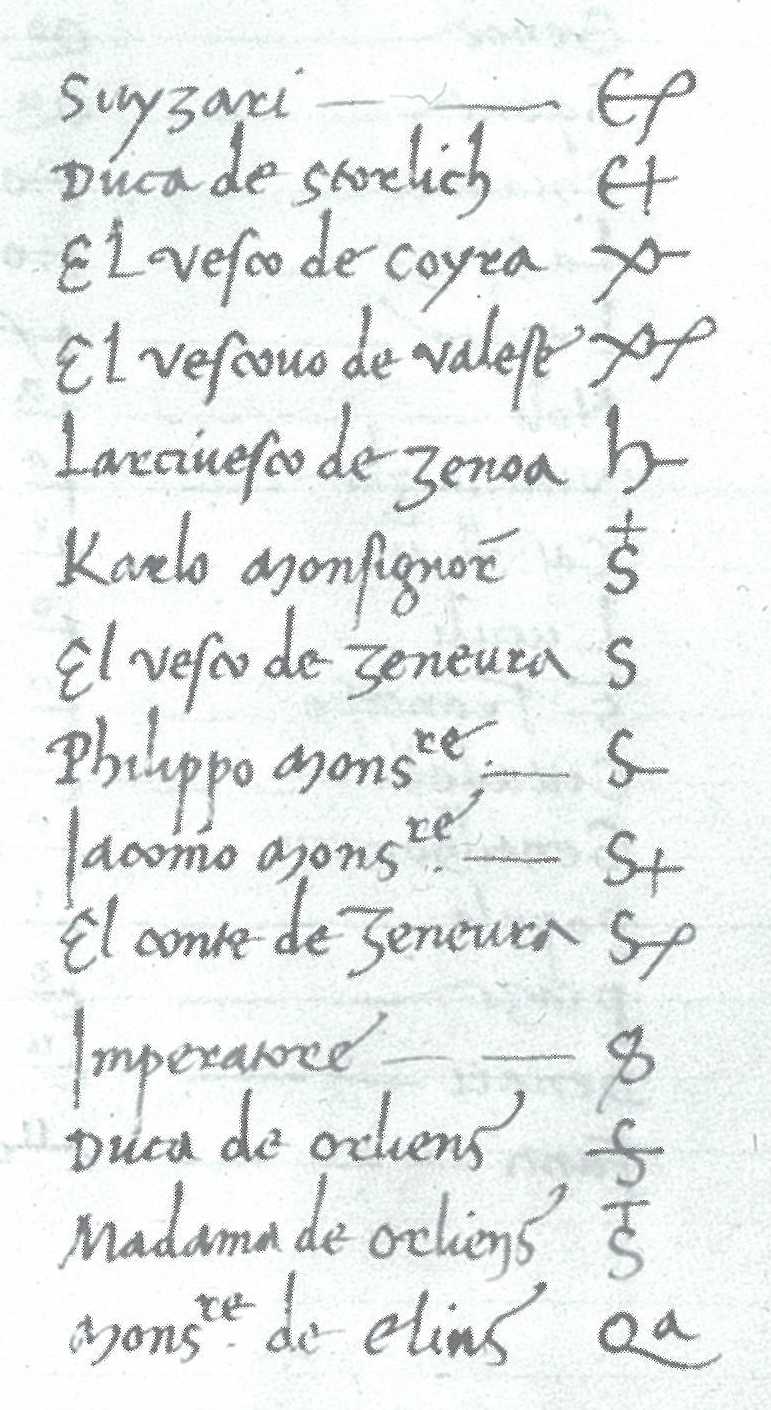 Suyzari
Duca de Storlich
El vesco de Coyra
El vescouo de valese
Larciuesco de Zenoa
Karlo Monsignor
El vesco de Zeneura S
Philippo Mons re S
Iacomo Mons re S+
El conte de Zeneura
Imperatore
Duca de orliens
Madama de Orliens
Mons re de elins Qa